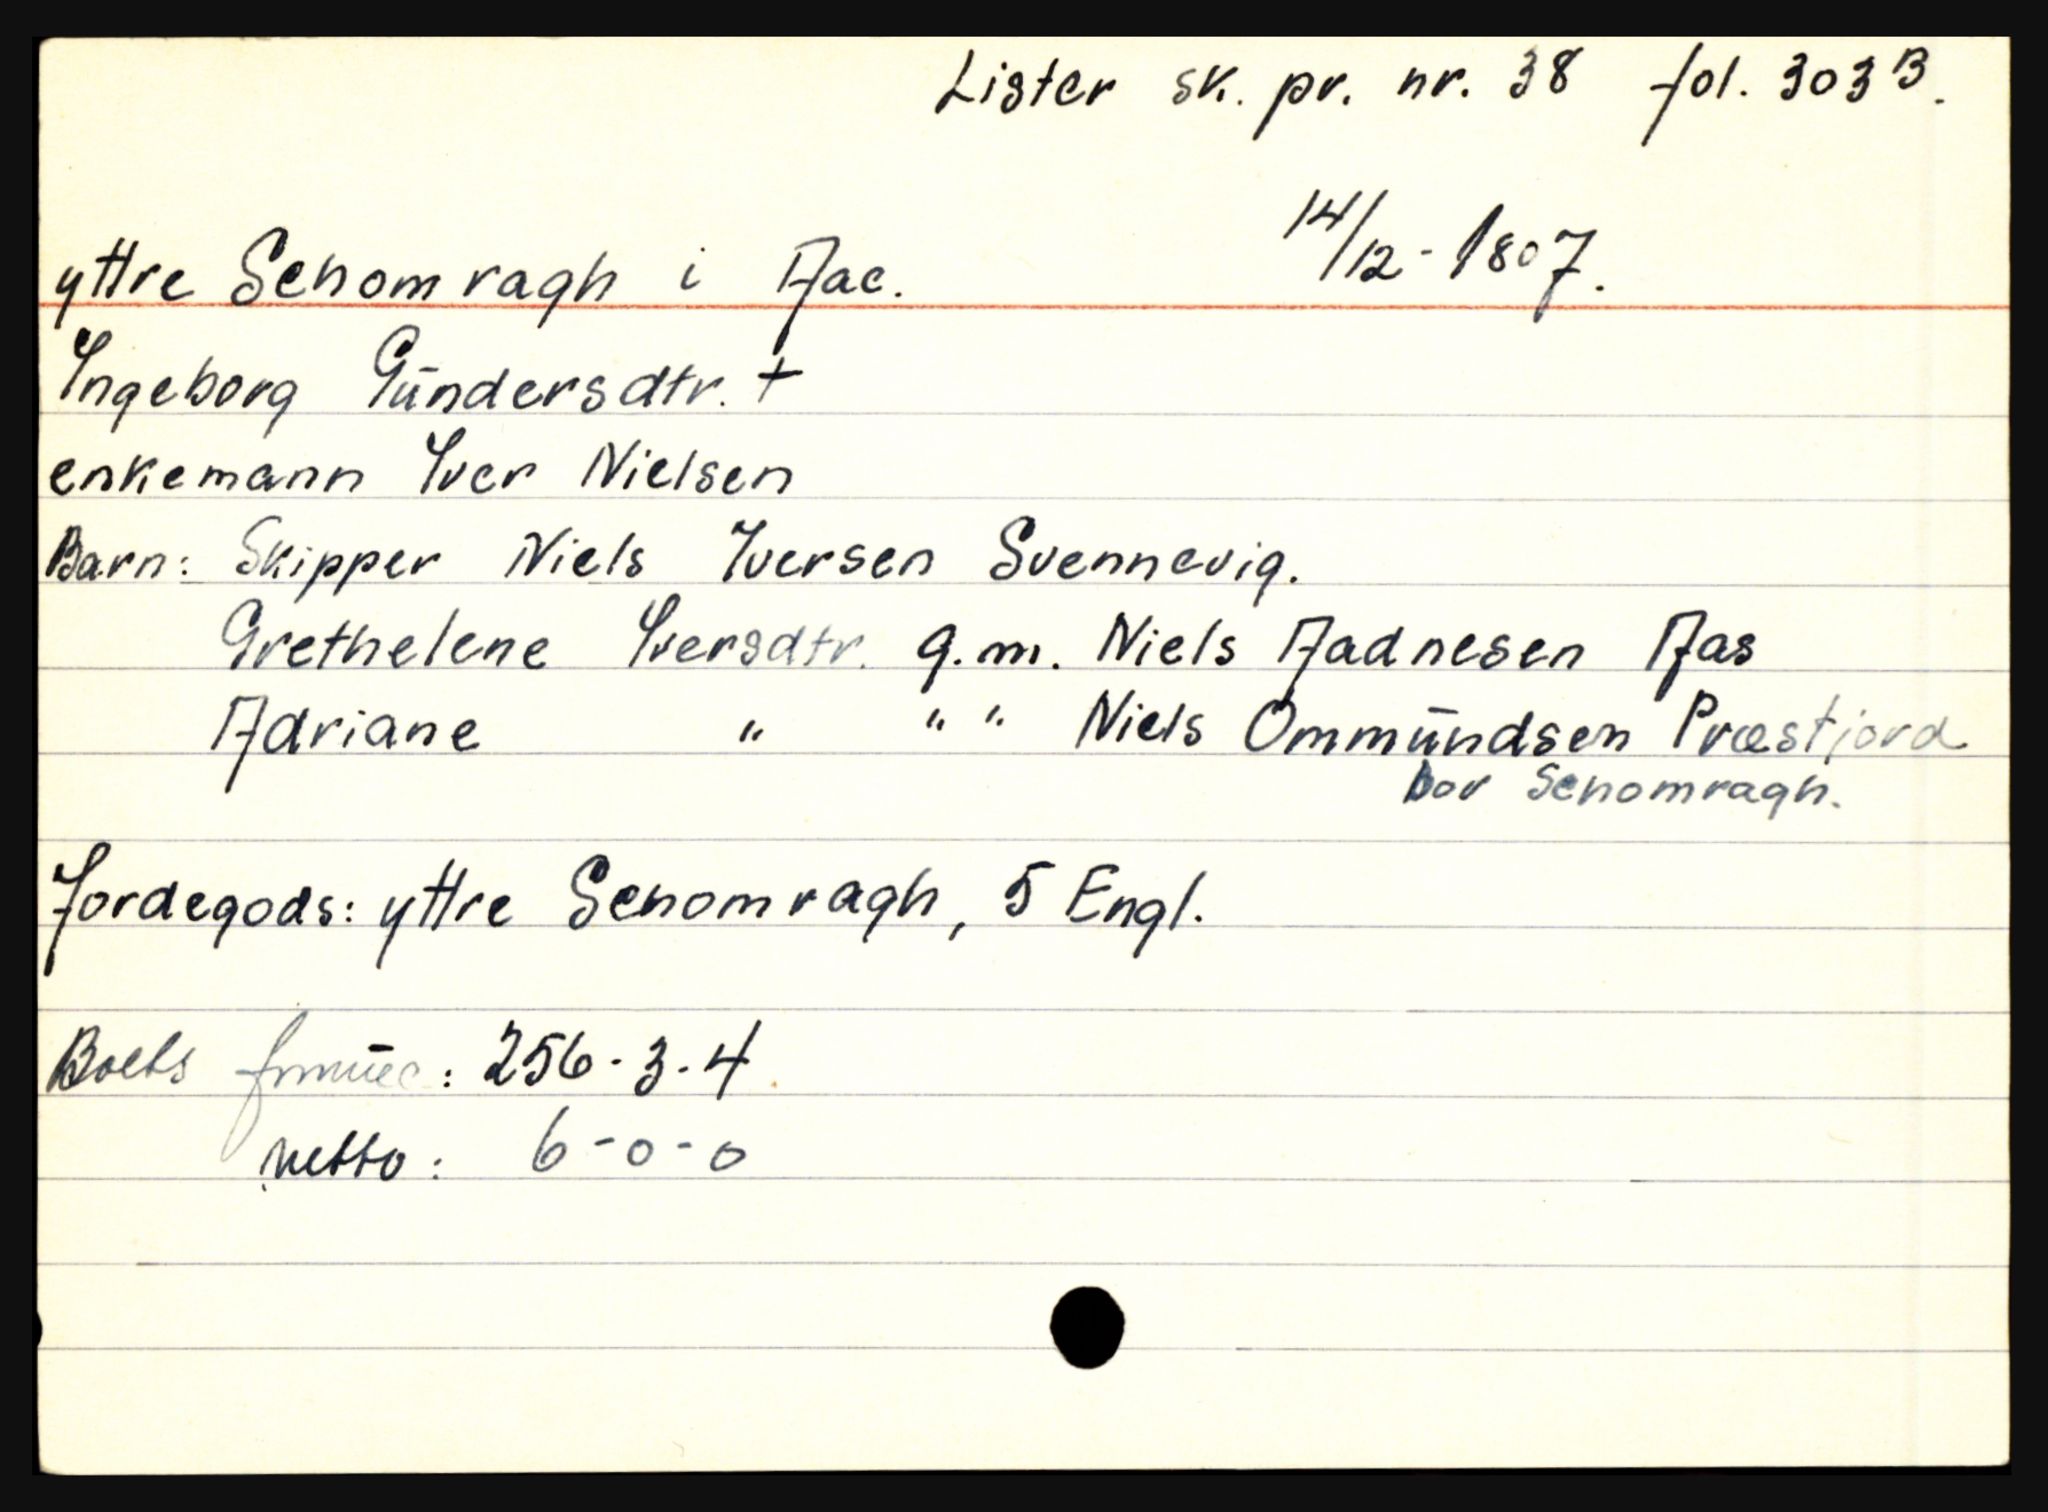 Lister sk. pr. nr. 38 fol. 303 B.
14/12 - 1807.
yttre Schomragh i Aac.
Ingeborg Gūndersdtr. +
enkemann Iver Nielsen
Barn: Skipper Niels Iversen Svennevig.
Grethelene Iversdtr. g.m. Niels Aadnesen Aas
Adriane " " " Niels Ommūndsen Præstjord
bor Schomragh.
Jordegods: yttre Schomragh, 5 Engl.
Boets : 256 - 3 - 4
netto: 6 - 0 - 0